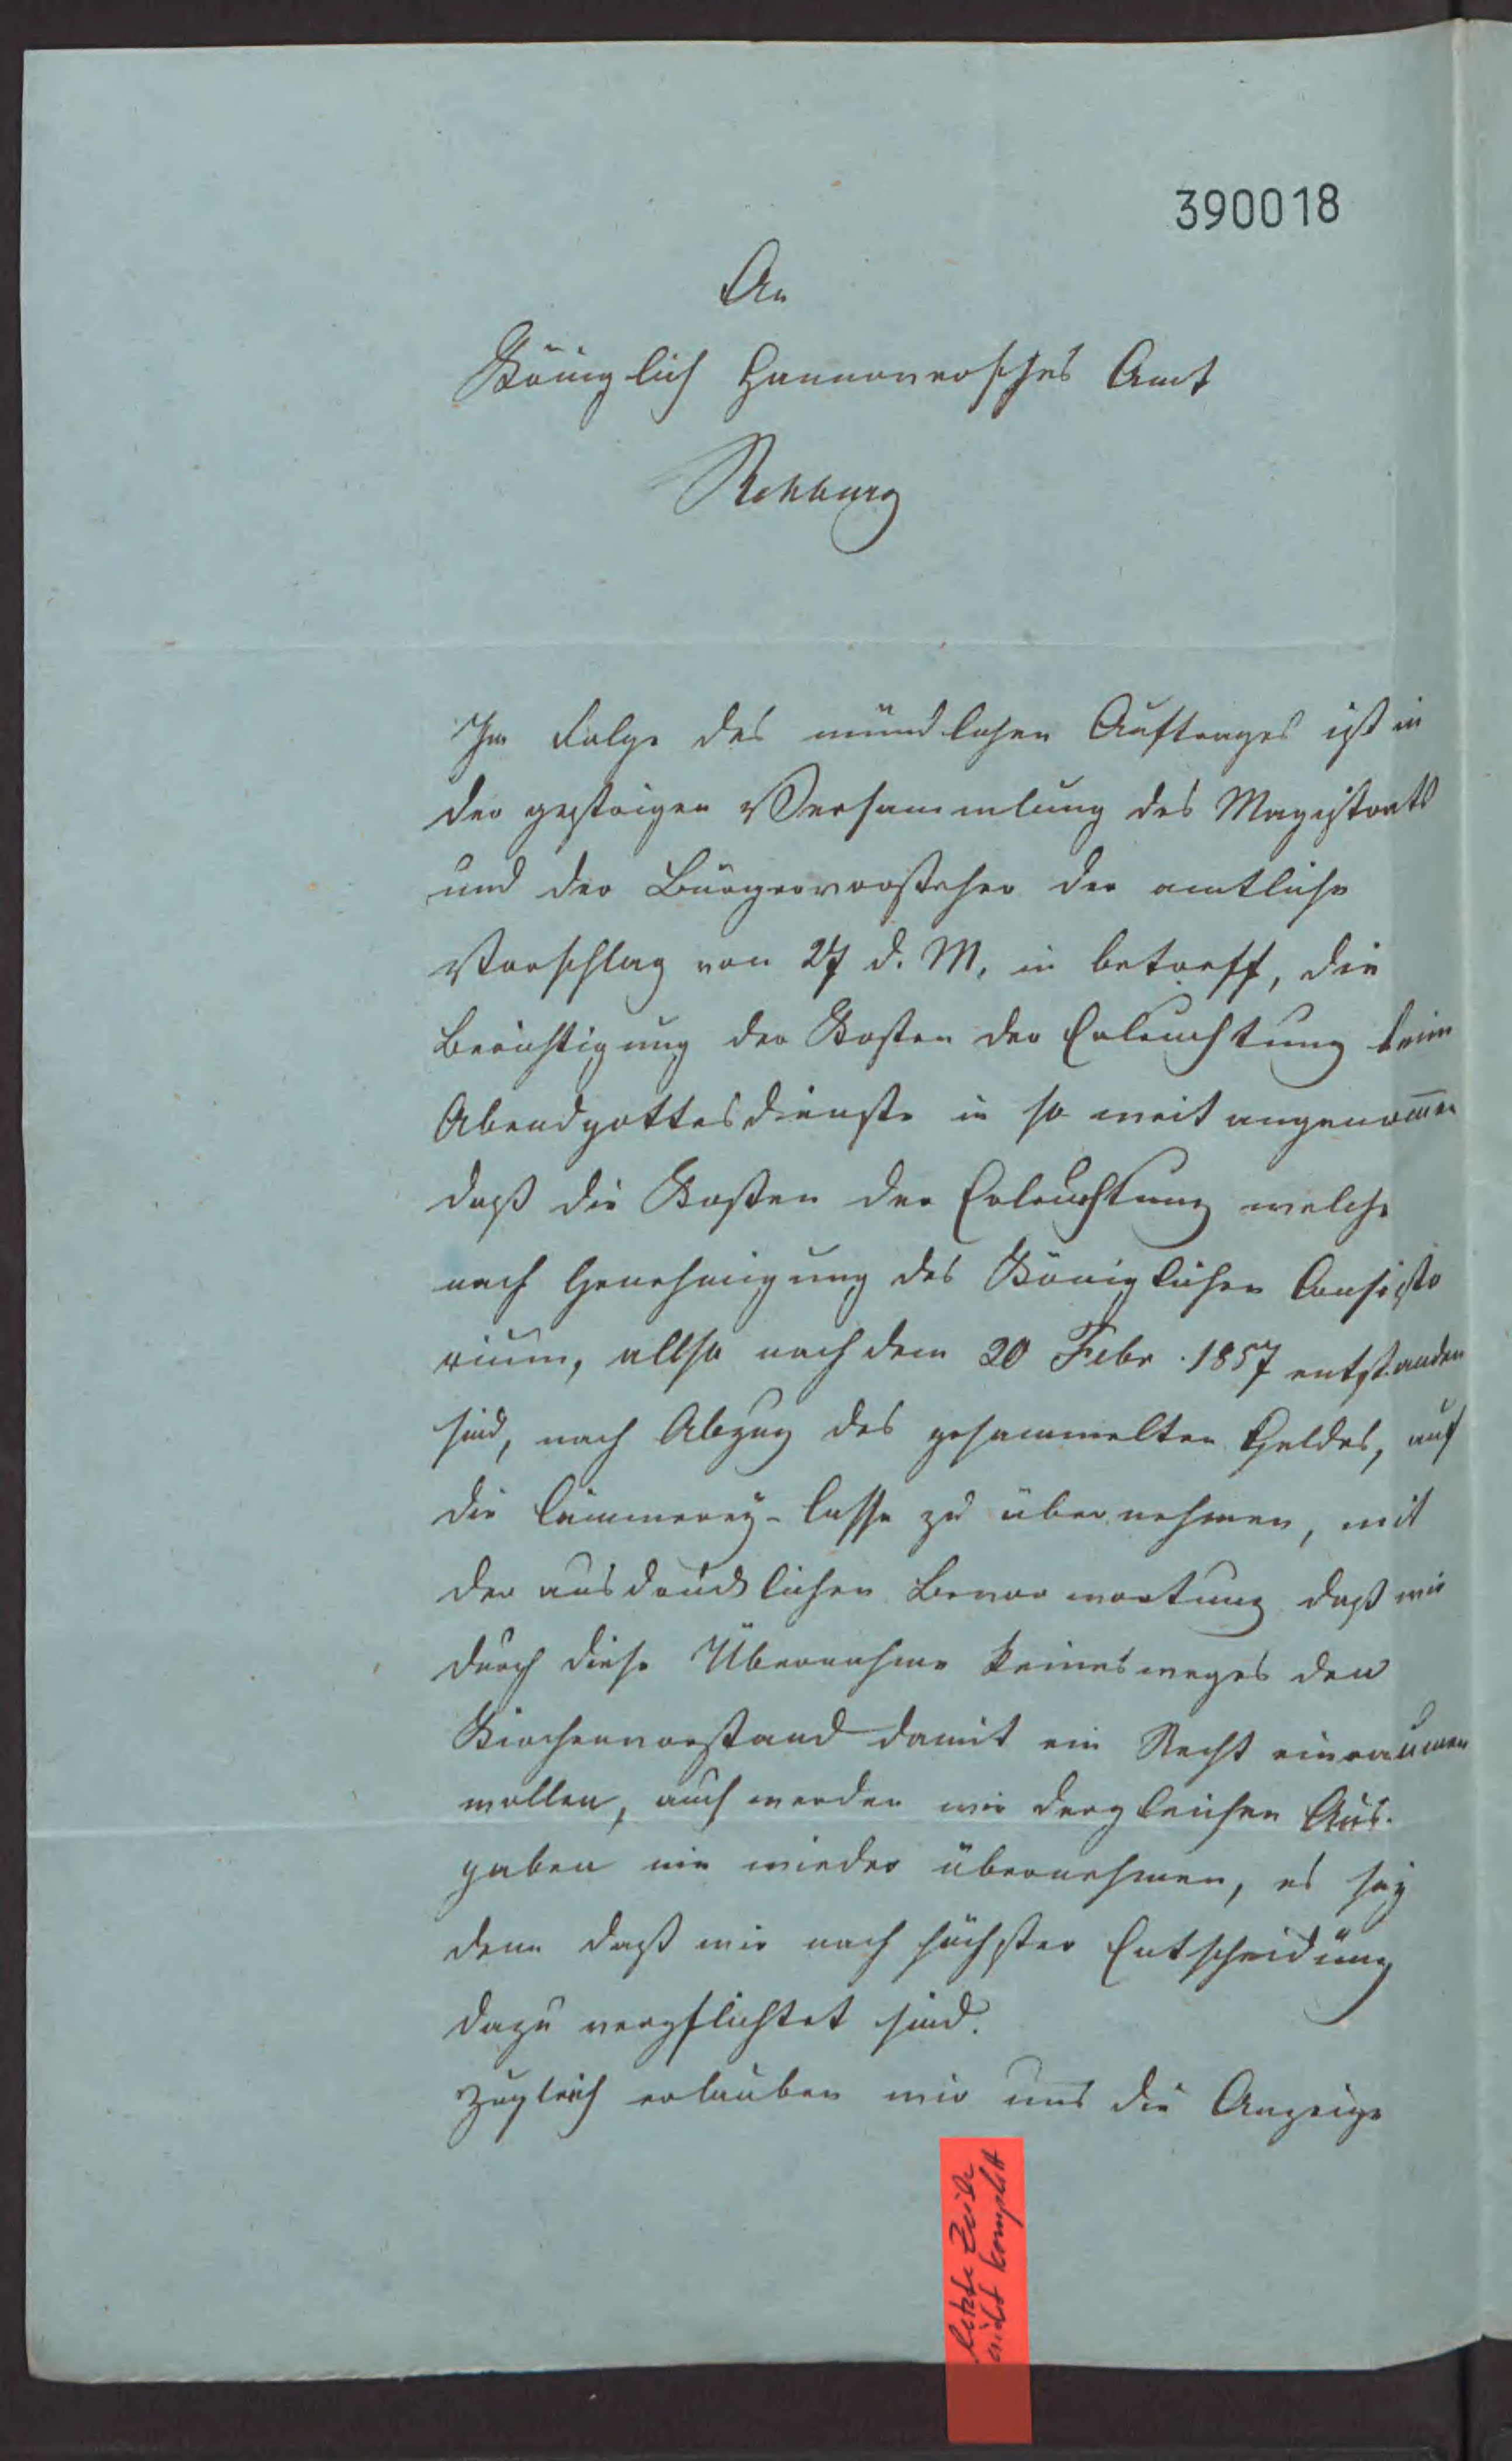 390018
An
Königlich Hannoversches Amt
Rehburg
In Folge des mündlichen Auftrages ist in
der gestrigen Versammlung des Magistrats
und der Bürgervorsteher der amtliche
Vorschlag von 27 d. M. in betreff, die
Berichtigung der Kosten der Erleuchtung beim
Abendgottesdienste in so weit angenom̅en
daß die Kosten der Erleuchtung welche
nach Genehmigung des Königlichen Consisto
rium, allso nach dem 20 Febr. 1857 entstanden
sind, nach Abzug des gesammelten Geldes, auf
die Cämmerey-Casse zu übernehmen, mit
der ausdrücklichen Bevorwortung daß wir
durch diese Übernahme keinesweges den
Kirchenvorstand damit ein Recht einräumen
wollen, auch werden wir dergleichen Aus-
gaben nie wieder übernehmen, es sey
denn daß wir nach höchster Entscheidung
dazu verpflichtet sind.
Zugleich erlauben wir uns die Anzeige
letzte Zeile
nicht komplett